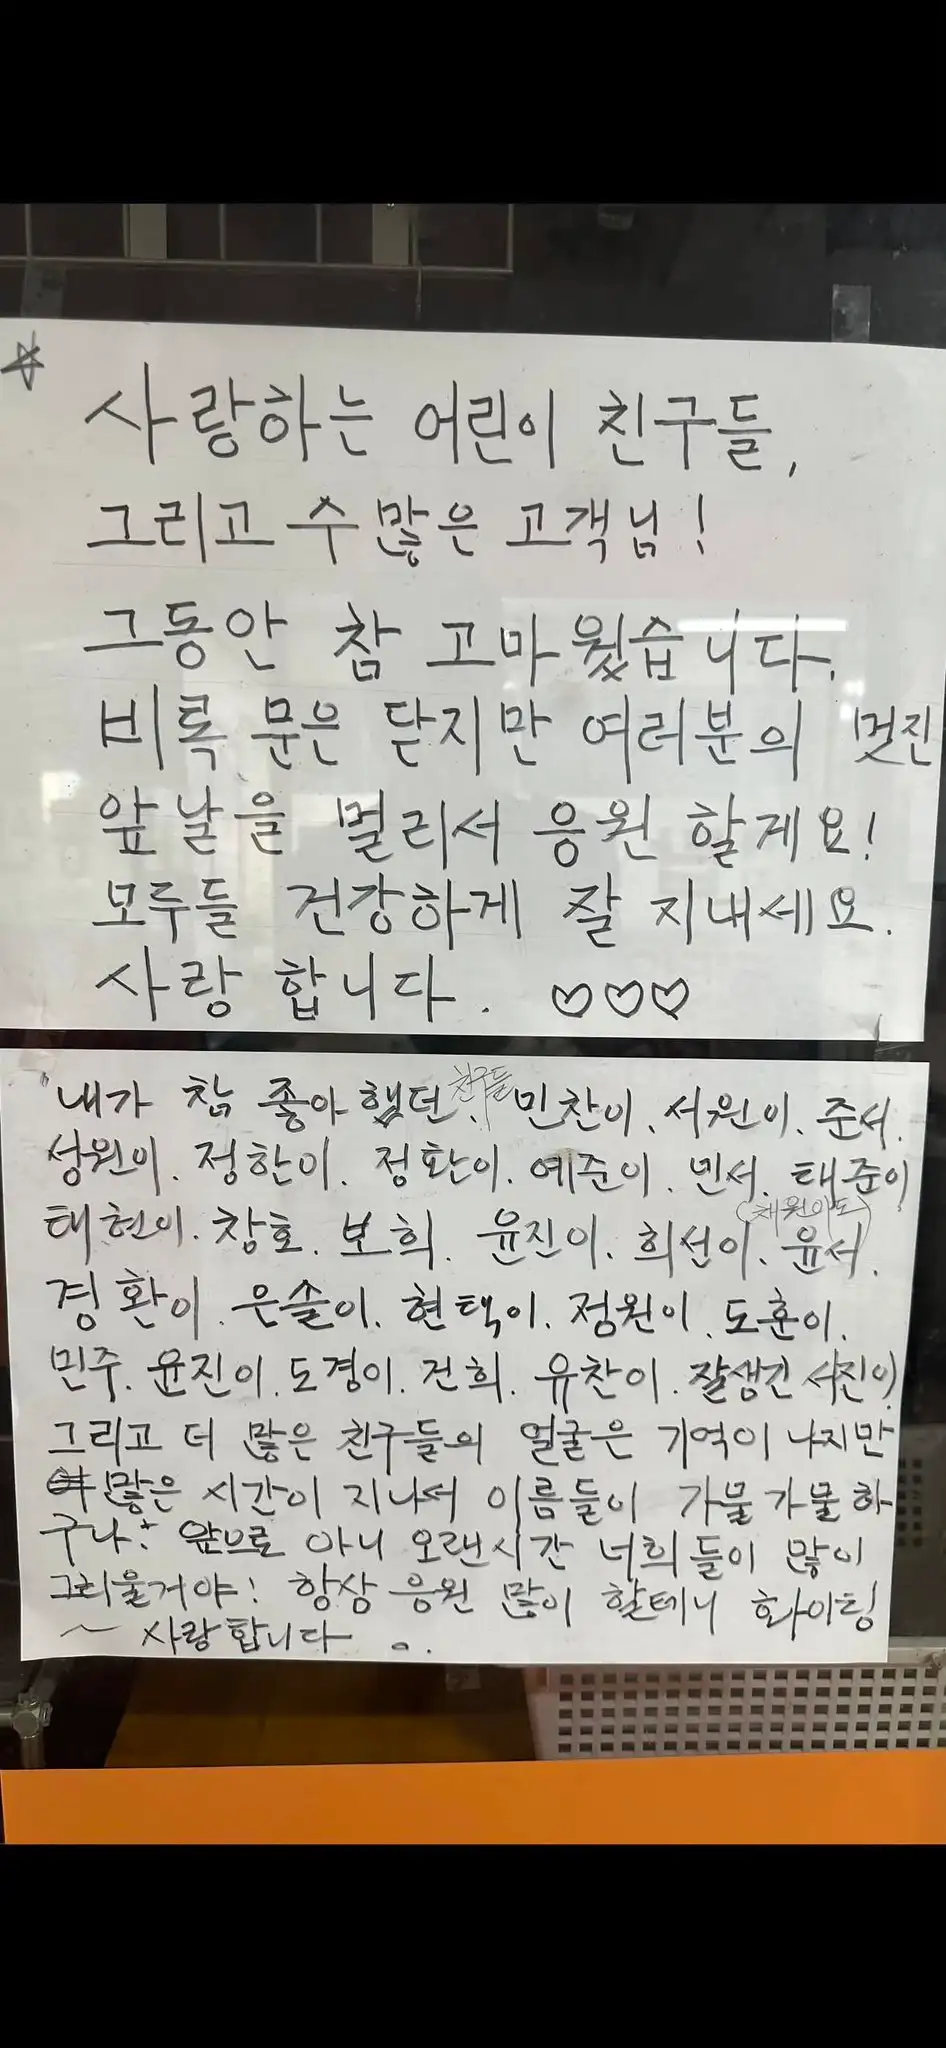 사랑하는 어린이 친구들,
그리고 수 많은 고객님!
그동안 참 고마웠습니다.
비록 문은 닫지만 여러분의 멋진
앞날을 멀리서 응원 할게요!
모두들 건강하게 잘 지내세요.
사랑 합니다. ♡♡♡
내가 참 좋아했던 친구들 민찬이. 서원이. 준서.
성원이. 정한이. 정환이. 예준이. 민서. 태준이
(채원이도)
태현이. 창호. 보희. 윤진이. 희선이. 윤서.
경환이. 은솔이. 현택이. 정원이. 도훈이.
민주. 윤진이. 도경이. 건희. 유찬이. 잘생긴 서진이
그리고 더 많은 친구들의 얼굴은 기억이 나지만
많은 시간이 지나서 이름들이 가물가물하
구나. 앞으로 아니 오랜시간 너희들이 많이
그리울거야! 항상 응원 많이 할테니 화이팅
~ 사랑합니다